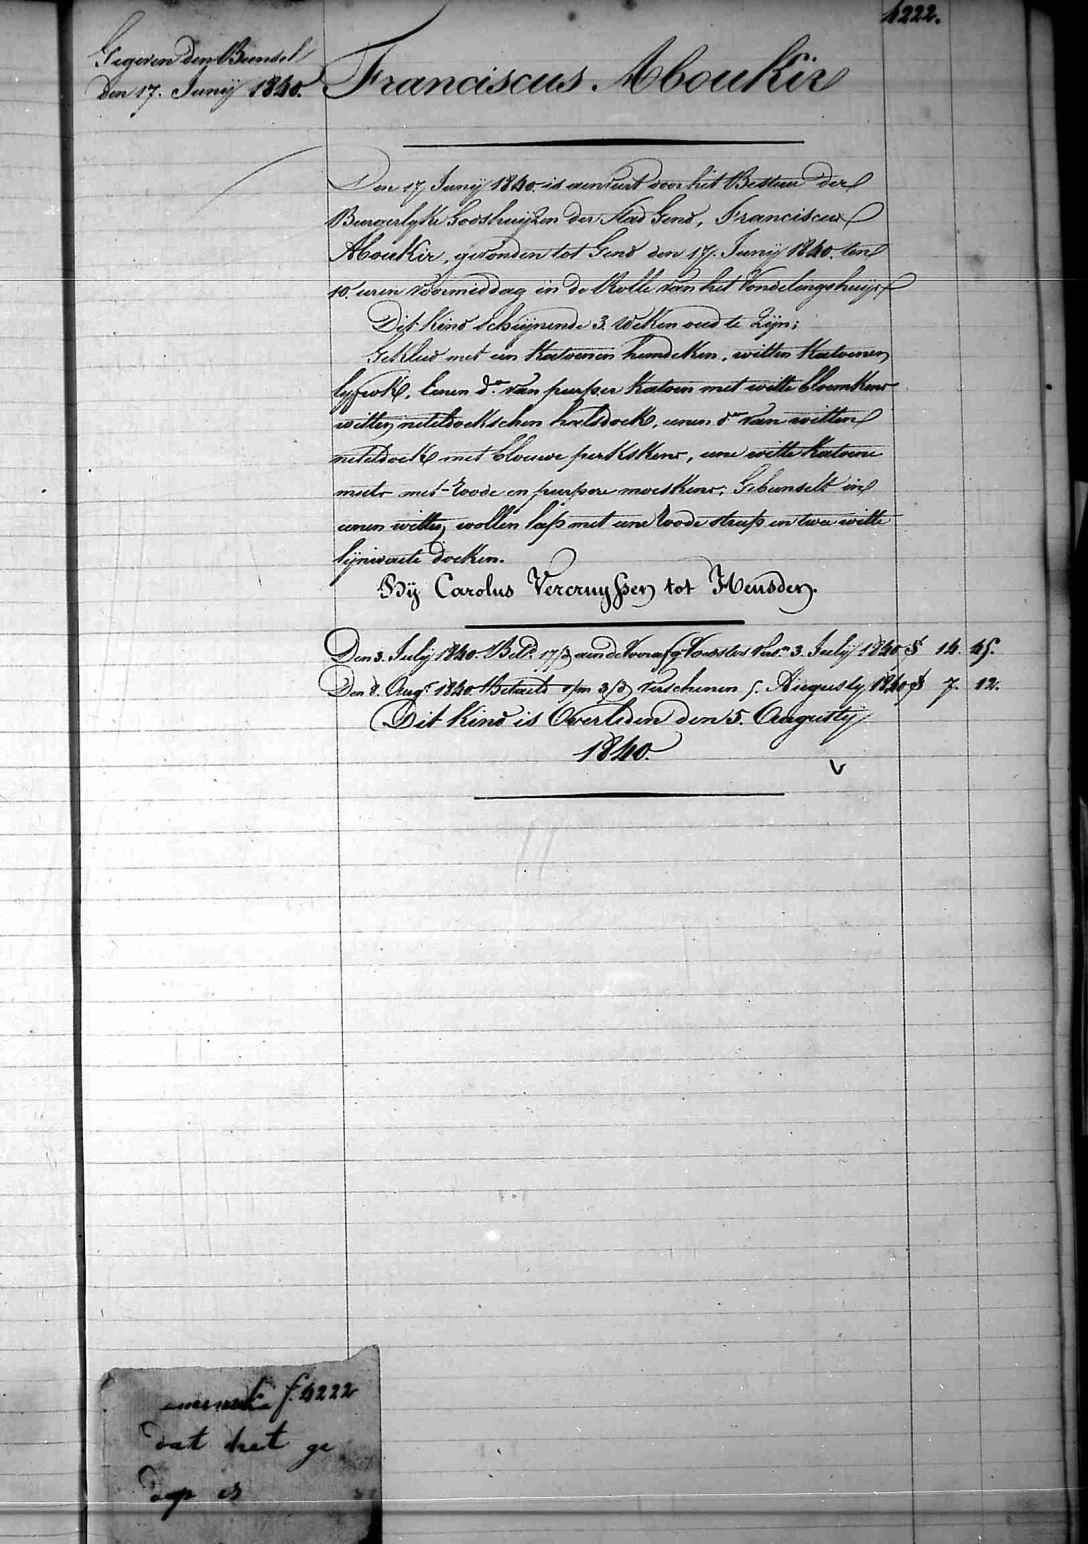 4222.
Gegeven den Bundel
den 17. Junij 1840.
Franciscus Aboukir
Den 17 Junij 1840 is aenveirt door het Bestuer der
Burgerlyke Godshuijzen der Stad Gend, Franciscus
Aboukir, gevonden tot Gend den 17. Junij 1840. ten
10. uren voormiddag in de Rolle van het Vondelingshuijs.
Dit kind schijnende 3. weken oud te zijn;
Gekleed met een katoenen hemdeken, witten katoenen
lyfrok, eenen do. van purper katoen met witte bloemkens
witten neteldoekschen halsdoek, eenen do. van witten
neteldoek met blouwe perkskens, eene witte katoene
muts met roode en purpere moeskens, Gebunselt in
eenen witten wollen lap met eene roode streep en twee witte
lijnwaete doeken.
Bij Carolus Vercruyssen tot Heusden.
Den 3. Julij 1840. Betd. 17/3 aen de Voorafg. Voorstos Vers. 3. Julij 1840 14. 45.
Den 8. Augt. 1840 Betaeld 1/m 3/3 verschenen 5. Augusty 1840 7. 12.
Dit kind is Overleden den 5. Augustij
1840.
f. 4222
dat het ge
dop is